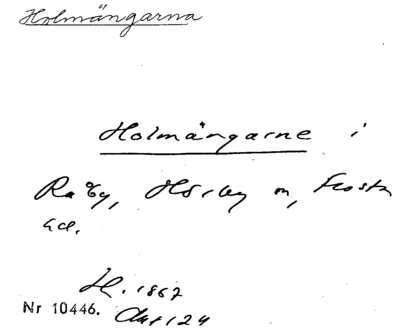 Holmängarna
Holmängarne i
Råby, Hörby m, Frosta
hd.
H. 1867
Nr 10446.
Akt 124